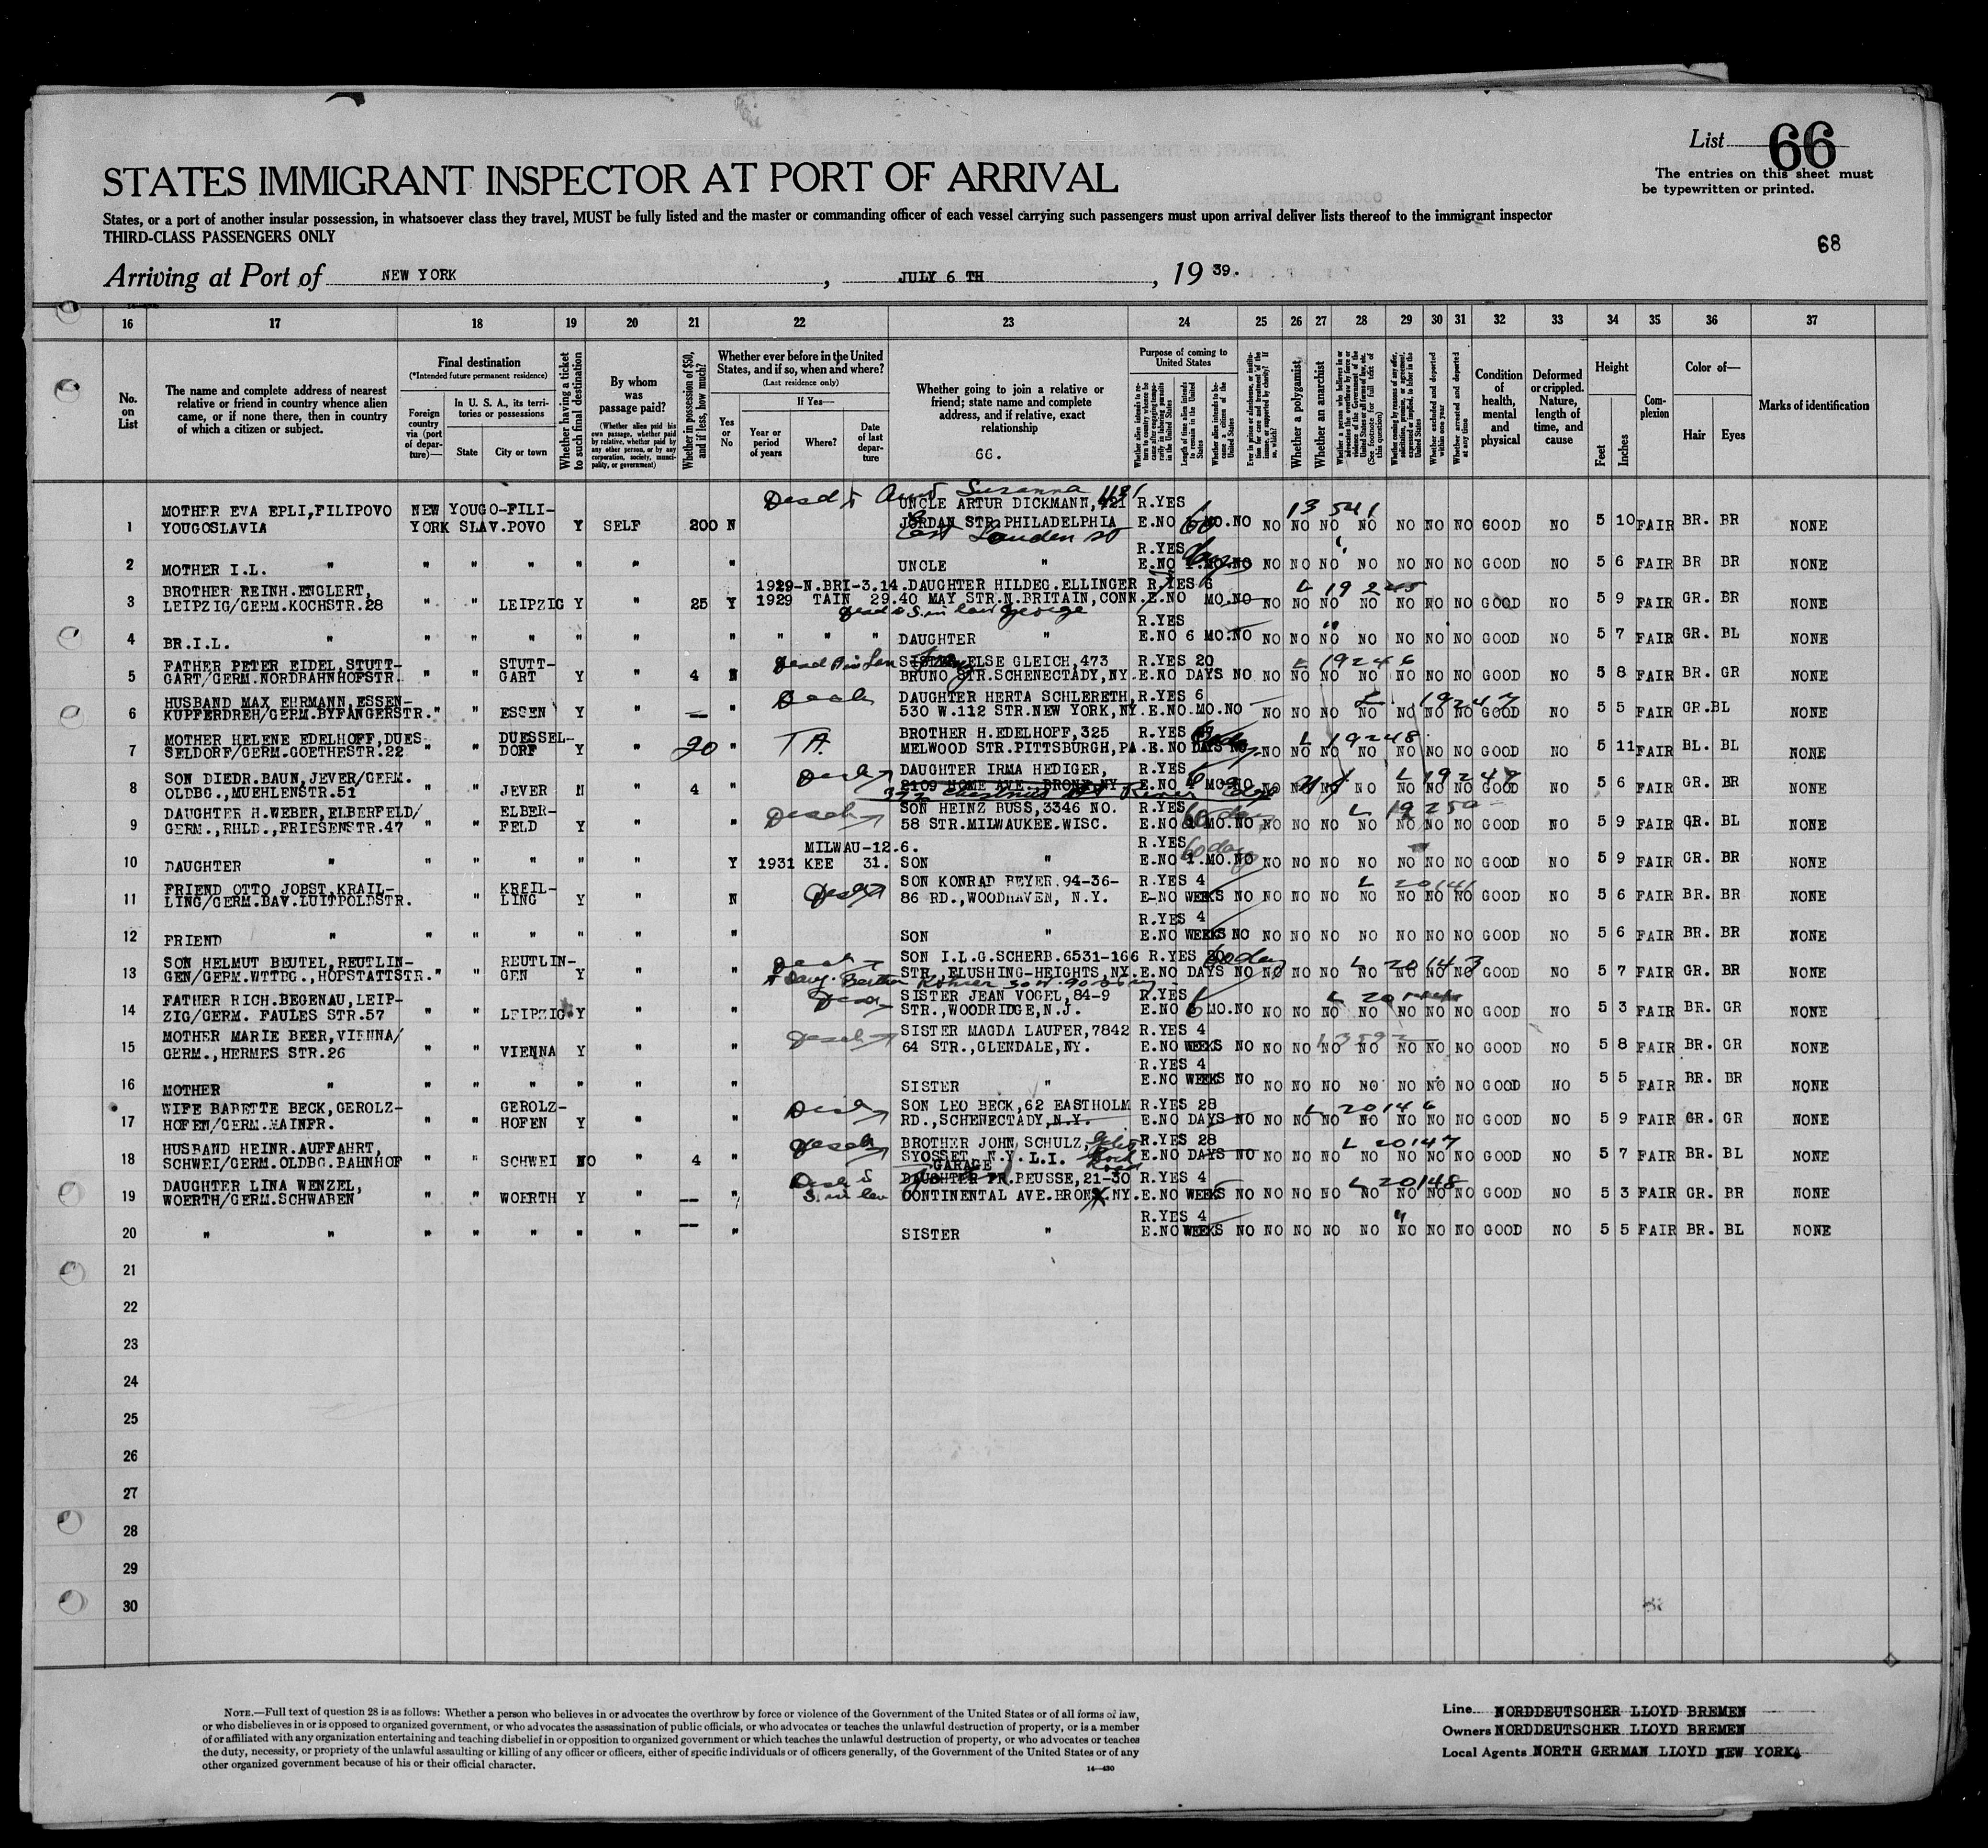 List 66
The entries on this sheet must
be typewritten or printed.
STATES IMMIGRANT INSPECTOR AT PORT OF ARRIVAL
States, or a port of another insular possession, in whatsoever class they travel, MUST be fully listed and the master or commanding officer of each vessel carrying such passengers must upon arrival deliver lists thereof to the immigrant inspector
THIRD-CLASS PASSENGERS ONLY
68
Arriving at Port of NEW YORK, JULY 6 TH, 19 39.
16 17 18 19 20 21 22 23 24 25 26 27 28 29 30 31 32 33 34 35 36 37
No. on List
The name and complete address of nearest relative or friend in country whence alien came, or if none there, then in country of which a citizen or subject.
Final destination
(*Intended future permanent residence)
Foreign country via (port of departure)—
In U. S. A., its territories or possessions
State
City or town
Whether having a ticket to such final destination
By whom was passage paid?
(Whether alien paid his own passage, whether paid by relative, whether paid by any other person, or by any corporation, society, municipality, or government)
Whether in possession of $50, and if less, how much?
Whether ever before in the United States, and if so, when and where?
(Last residence only)
Yes or No
If Yes—
Year or period of years
Where?
Date of last departure
Whether going to join a relative or friend; state name and complete address, and if relative, exact relationship
66.
Purpose of coming to United States
Length of time alien intends to remain in the United States
Whether alien intends to become a citizen of the United States
Whether a polygamist
Whether an anarchist
Whether excluded and deported within one year
Whether arrested and deported at any time
Condition of health, mental and physical
Deformed or crippled. Nature, length of time, and cause
Height
Feet
Inches
Complexion
Color of—
Hair
Eyes
Marks of identification
Aunt Susanna
1 MOTHER EVA EPLI,FILIPOVO NEW YOUGO-FILI- UNCLE ARTUR DICKMANN, R.YES 13541
YOUGOSLAVIA YORK SLAV.POVO Y SELF 200 N JORDAN STR.PHILADELPHIA E.NO MO.NO NO NO NO NO NO NO NO GOOD NO 5 10 FAIR BR. BR NONE
R.YES
2 MOTHER I.L. " " " " " " UNCLE " E.NO NO NO NO NO NO NO NO GOOD NO 5 6 FAIR BR BR NONE
3 BROTHER REINH.ENGLERT, 1929-N.BRI-3.14.DAUGHTER HILDEG.ELLINGER R.YES 6
LEIPZIG/GERM.KOCHSTR.28 " " LEIPZIG Y " 25 Y 1929 TAIN 29.40 MAY STR.N.BRITAIN,CONN.E.NO MO.NO NO NO NO NO NO NO NO GOOD NO 5 9 FAIR GR. BR NONE
R.YES
4 BR.I.L. " " " " " " " " " " DAUGHTER " E.NO 6 MO.NO NO NO NO NO NO NO NO GOOD NO 5 7 FAIR GR. BL NONE
5 FATHER PETER EIDEL,STUTT- STUTT- ELSE GLEICH,473 R.YES 20 L 19246
GART/GERM.NORDBAHNHOFSTR. " " GART Y " 4 N BRUNO STR.SCHENECTADY,NY.E.NO DAYS NO NO NO NO NO NO NO NO GOOD NO 5 8 FAIR BR. GR NONE
6 HUSBAND MAX EHRMANN,ESSEN- DAUGHTER HERTA SCHLERETH, R.YES 6 L 19247
KUPFERDREH/GERM.BYFANGERSTR." " ESSEN Y " — " 530 W.112 STR.NEW YORK,NY.E.NO.MO.NO NO NO NO NO NO NO NO GOOD NO 5 5 FAIR GR.BL NONE
7 MOTHER HELENE EDELHOFF,DUES DUESSEL- BROTHER H.EDELHOFF,325 R.YES L 19248
SELDORF/GERM.GOETHESTR.22 " " DORF Y " 20 " MELWOOD STR.PITTSBURGH,PA.E.NO DAYS NO NO NO NO NO NO NO NO GOOD NO 5 11 FAIR BL. BL NONE
8 SON DIEDR.BAUN,JEVER/GERM. DAUGHTER IRMA HEDIGER, R.YES
OLDBG.,MUEHLENSTR.51 " " JEVER N " 4 " 2109 HOME AVE. BRONX NY E.NO MO.NO NO GOOD NO 5 6 FAIR GR. BR NONE
9 DAUGHTER H.WEBER,ELBERFELD/ ELBER- SON HEINZ BUSS,3346 NO. R.YES
GERM.,RHLD.,FRIESENSTR.47 " " FELD Y " " 58 STR.MILWAUKEE.WISC. E.NO MO.NO NO NO NO NO NO NO NO GOOD NO 5 9 FAIR GR. BL NONE
MILWAU-12.6. R.YES 60 days
10 DAUGHTER " " " " " " Y 1931 KEE 31. SON " E.NO MO.NO NO NO NO NO NO NO NO GOOD NO 5 9 FAIR GR. BR NONE
11 FRIEND OTTO JOBST,KRAIL- KREIL- SON KONRAD BEYER.94-36- R.YES 4 L 20141
LING/GERM.BAV.LUITPOLDSTR. " LING Y " N 86 RD.,WOODHAVEN, N.Y. E-NO WEEKS NO NO NO NO NO NO NO NO GOOD NO 5 6 FAIR BR. BR NONE
R.YES 4
12 FRIEND " " " " " " " SON " E.NO WEEKS NO NO NO NO NO NO NO NO GOOD NO 5 6 FAIR BR. BR NONE
13 SON HELMUT BEUTEL,REUTLIN- REUTLIN- SON I.L.G.SCHERB.6531-166 R.YES L 20143
GEN/GERM.WTTBG.,HOFSTATTSTR." " GEN Y " " STR.,FLUSHING-HEIGHTS,NY.E.NO DAYS NO NO NO NO NO NO NO NO GOOD NO 5 7 FAIR GR. BR NONE
14 FATHER RICH.BEGENAU,LEIP- SISTER JEAN VOGEL,84-9 R.YES
ZIG/GERM. FAULES STR.57 " " LEIPZIG Y " " STR.,WOODRIDGE,N.J. E.NO 6 MO.NO NO NO NO NO NO NO NO GOOD NO 5 3 FAIR BR. GR NONE
15 MOTHER MARIE BEER,VIENNA/ SISTER MAGDA LAUFER,7842 R.YES 4
GERM.,HERMES STR.26 " " VIENNA Y " " 64 STR.,GLENDALE,NY. E.NO WEEKS NO NO NO NO NO NO NO NO GOOD NO 5 8 FAIR BR. GR NONE
R.YES 4
16 MOTHER " " " " " " " SISTER " E.NO WEEKS NO NO NO NO NO NO NO NO GOOD NO 5 5 FAIR BR. BR NONE
17 WIFE BABETTE BECK,GEROLZ- GEROLZ- SON LEO BECK,62 EASTHOLM R.YES 28 L 20146
HOFEN/GERM.MAINFR. " " HOFEN Y " " RD.,SCHENECTADY,N.Y. E.NO DAYS NO NO NO NO NO NO NO NO GOOD NO 5 9 FAIR GR. GR NONE
18 HUSBAND HEINR.AUFFAHRT, BROTHER JOHN SCHULZ, R.YES 28 L 20147
SCHWEI/GERM.OLDBG.BAHNHOF " " SCHWEI NO " 4 " SYOSSET N.Y. L.I. E.NO DAYS NO NO NO NO NO NO NO NO GOOD NO 5 7 FAIR BR. BL NONE
GARAGE
19 DAUGHTER LINA WENZEL, DAUGHTER FR.BEUSSE,21-30 R.YES 4 L 20148
WOERTH/GERM.SCHWABEN " " WOERTH Y " — " CONTINENTAL AVE.BRONX.NY.E.NO WEEKS NO NO NO NO NO NO NO NO GOOD NO 5 3 FAIR GR. BR NONE
R.YES 4
20 " " " " " " " — " SISTER " E.NO WEEKS NO NO NO NO NO NO NO NO GOOD NO 5 5 FAIR BR. BL NONE
21
22
23
24
25
26
27
28
29
30
NOTE.—Full text of question 28 is as follows: Whether a person who believes in or advocates the overthrow by force or violence of the Government of the United States or of all forms of law,
or who disbelieves in or is opposed to organized government, or who advocates the assassination of public officials, or who advocates or teaches the unlawful destruction of property, or is a member
of or affiliated with any organization entertaining and teaching disbelief in or opposition to organized government or which teaches the unlawful destruction of property, or who advocates or teaches
the duty, necessity, or propriety of the unlawful assaulting or killing of any officer or officers, either of specific individuals or of officers generally, of the Government of the United States or of any
other organized government because of his or their official character.
14—430
Line NORDDEUTSCHER LLOYD BREMEN
Owners NORDDEUTSCHER LLOYD BREMEN
Local Agents NORTH GERMAN LLOYD NEW YORK.